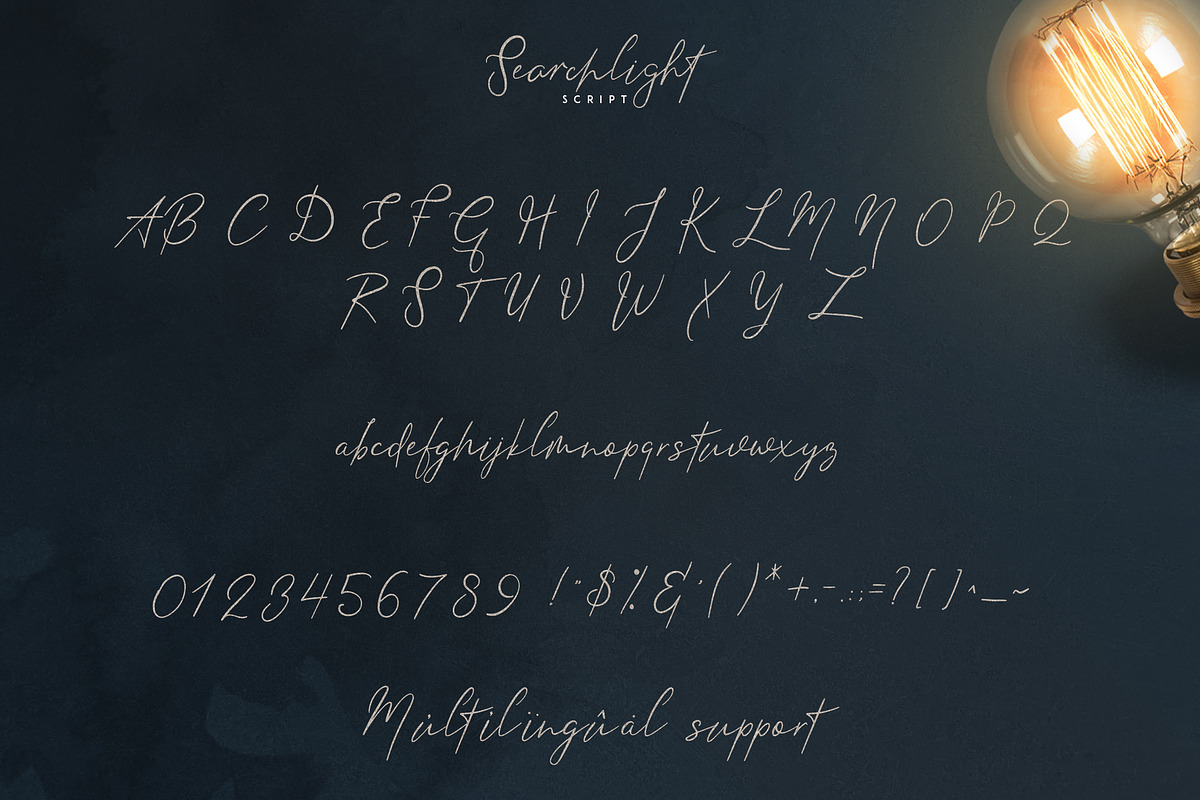 Searchlight
SCRIPT
A B C D E F G H I J K L M N O P Q
R S T U V W X Y Z
abcdefghijklmnopqrstuvwxyz
0123456789 !"$%&'()*+,-.:;=?[]^_~
Múltilïngûàl support